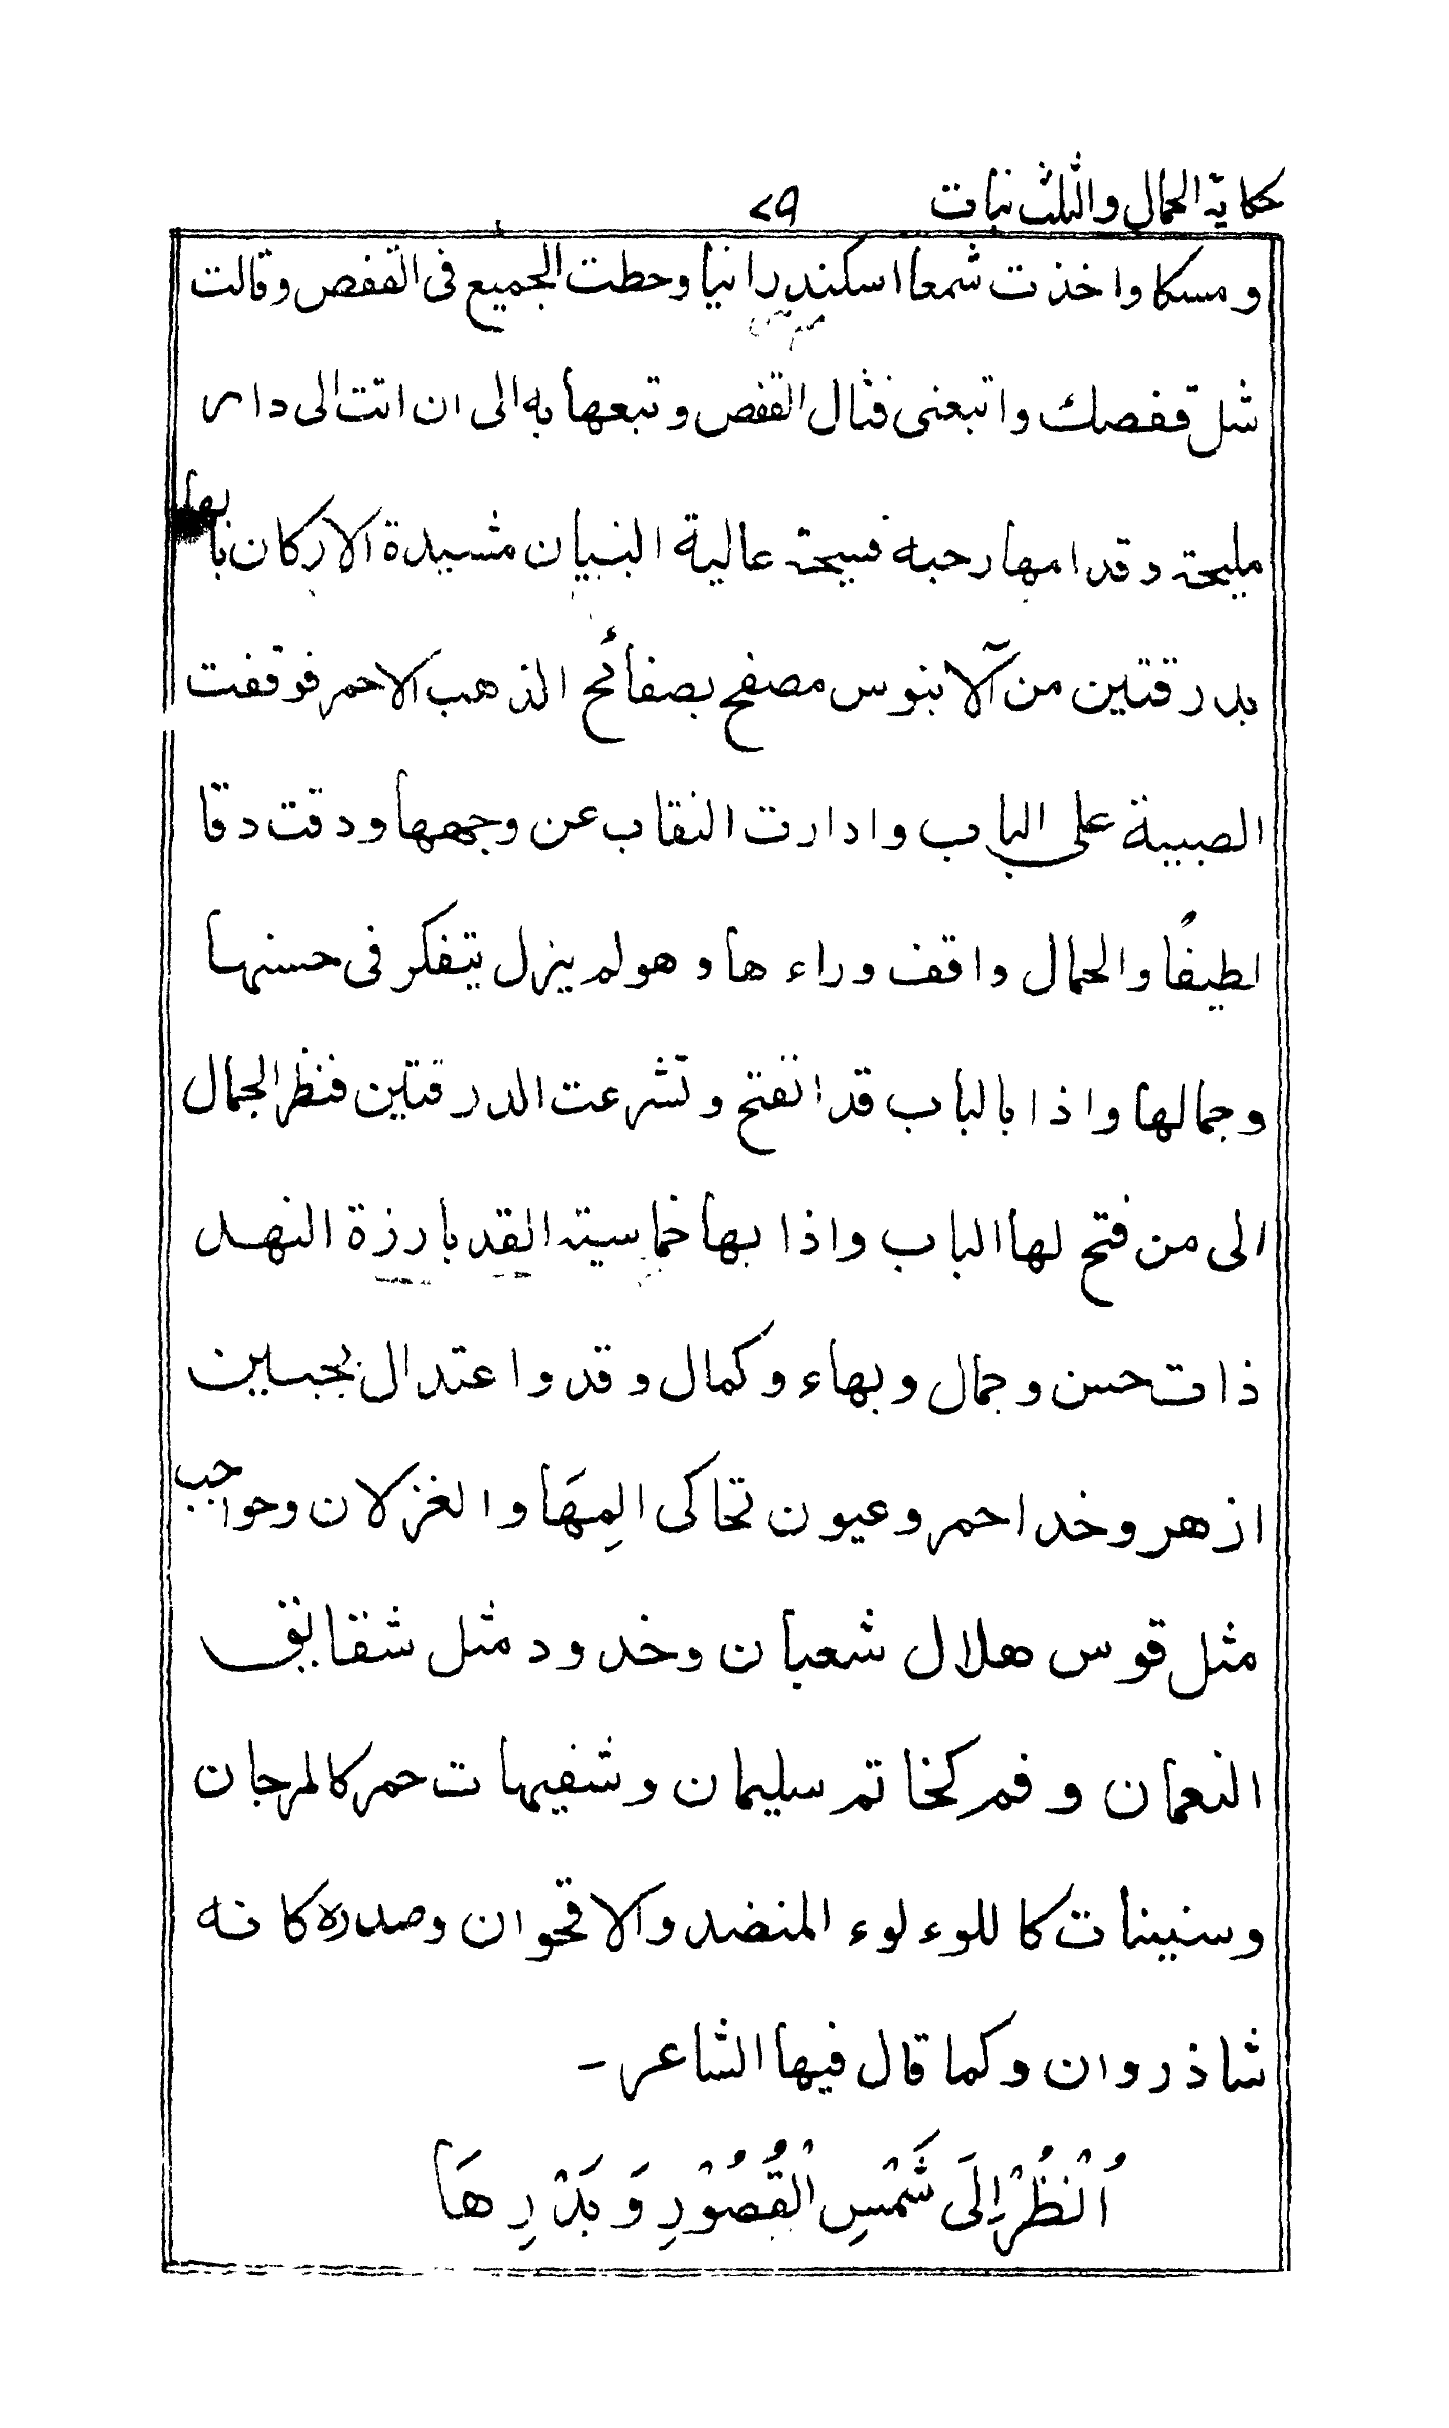 حكاية الحمال والثلث بنات ٢٩
ومسكا واخذت شمعا اسكندرانيا وحطت الجميع فى القفص وقالت
شل قفصك واتبعنى فشال القفص وتبعها به الى ان اتت الى دار
مليحة وقدامها رحبه فسيحة عالية البنيان مشيدة الاركان بابها
بدرقتين من آلابنوس مصفح بصفائح الذهب الاحمر فوقفت
الصبية على الباب وادارت النقاب عن وجهها ودقت دقا
لطيفًا والحمال واقف وراءها وهو لم يزل يتفكر فى حسنها
وجمالها واذا بالباب قد انفتح وتشرعت الدرقتين فنظر الجمال
الى من فتح لها الباب واذا بها خماسية القد بارزة النهد
ذات حسن وجمال وبهاء وكمال وقد واعتدال بجبين
ازهر وخد احمر وعيون تحاكى المِهَا والغزلان وحواجب
مثل قوس هلال شعبان وخدود مثل شقايق
النعمان وفم كخاتم سليمان وشفيهات حمر كالمرجان
وسنينات كاللوءلوء المنضد والاقحوان وصدره كانه
شاذروان وكما قال فيها الشاعر -
اُنْظُرْ اِلَى شَمْسِ الْقُصُوْرِ وَبَدْرِهَا